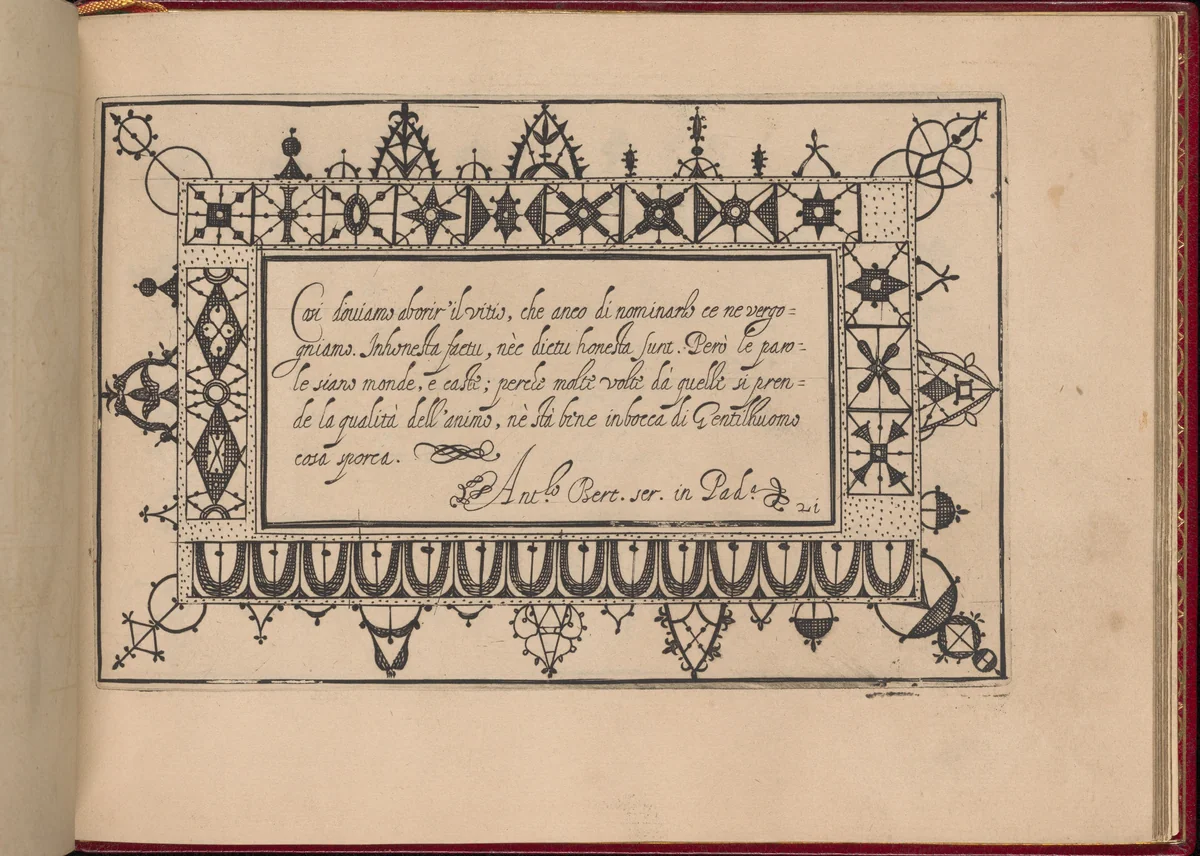 Cosi doviamo aborir' il vitio, che anco di nominarlo ce ne vergo=
gniamo. Inhonesta factu, nèc dictu honesta sunt. Però le paro=
le siano monde, e caste; perche molte volte dà quelle si pren=
de la qualità dell'animo, nè stà bene in bocca di Gentilhuomo
cosa sporca.
Ant.lo Bert. scr. in Pad.a
21